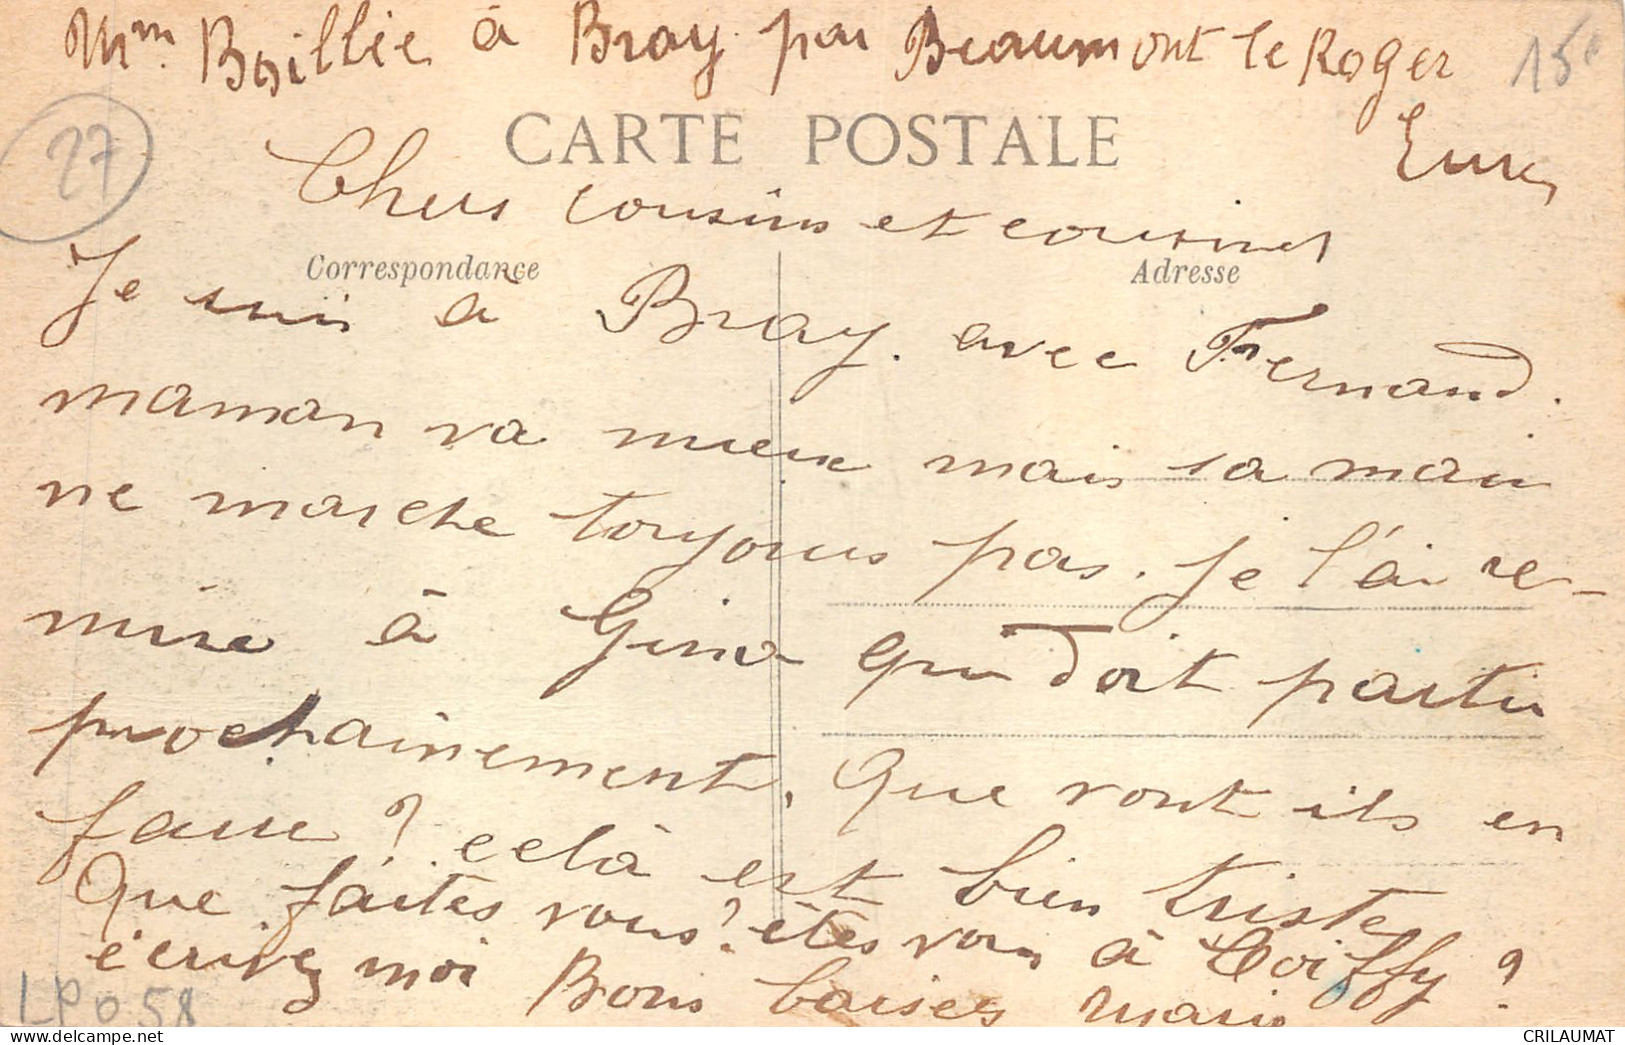 Mm Boillie à Bray par Beaumont le Roger
15e
Eure
27
CARTE POSTALE
Chers cousins et cousines
Correspondance
Adresse
Je suis à Bray. avec Fernand.
maman va mieux mais sa main
ne marche toujours pas. Je l'ai re-
mise à Gina qui doit partir
prochainement. Que vont ils en
faire? celà est bien triste
Que faites vous? êtes vous à Coiffy?
écrivez moi Bons baises
LPO 58
CRILAUMAT